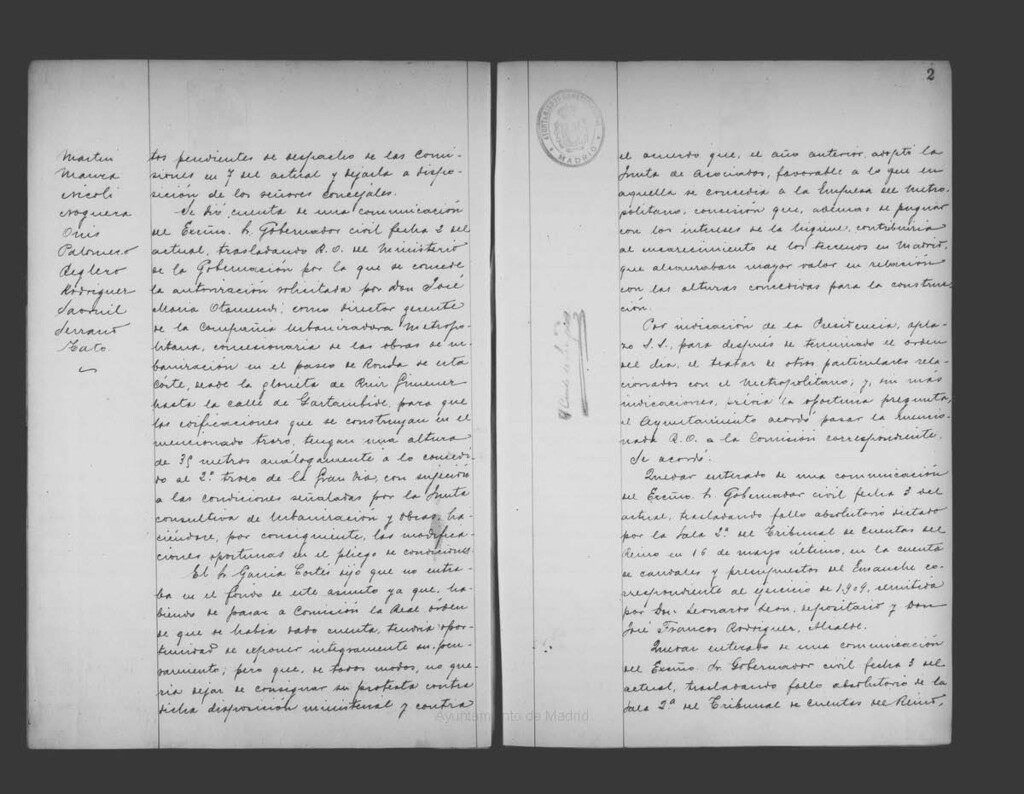 Martin
Maura
Nicoli
Noguera
Onis
Palomero
Reglero
Rodriguez
Saornil
Serrano
Tato
tos pendientes de despacho de las Comi-
siones en 7 del actual y dejarla a dispo-
sición de los señores Concejales.
Se dió cuenta de una comunicación
del Excmo. Sr. Gobernador civil fecha 2 del
actual, trasladando R.O. del Ministerio
de la Gobernación por la que se concede
la autorización solicitada por Don José
Maria Otamendi, como director gerente
de la Compañia Urbanizadora Metropo-
litana, concesionaria de las obras de ur-
banización en el paseo de Ronda de esta
Corte, desde la glorieta de Ruiz Gimenez
hasta la calle de Gaztambide, para que
las edificaciones que se construyan en el
mencionado trozo, tengan una altura
de 35 metros análogamente a lo concedi-
do al 2º trozo de la Gran Via, con sujeción
a las condiciones señaladas por la Junta
consultiva de Urbanización y Obras, ha-
ciéndose, por consiguiente, las modifica-
ciones oportunas en el pliego de condiciones.
El Sr. Garcia Cortés dijo que no entra-
ba en el fondo de este asunto ya que, ha-
biendo de pasar a Comisión la Real órden
de que se habia dado cuenta, tendria opor-
tunidad de exponer integramente su pen-
samiento; pero que, de todos modos, no que-
ria dejar de consignar su protesta contra
dicha disposición ministerial y contra
Ayuntamiento de Madrid
2
AYUNTAMIENTO CONSTITUCIONAL
MADRID
el acuerdo que, el año anterior, adoptó la
Junta de Asociados, favorable a lo que en
aquella se concedia a la Empresa del Metro-
politano, concesión que, ademas de pugnar
con los intereses de la higiene, contribuiria
al encarecimiento de los terrenos en Madrid,
que alcanzaban mayor valor en relación
con las alturas concedidas para la construc-
ción.
Por indicación de la Presidencia, apla-
zó S.S., para después de terminado el orden
del dia, el tratar de otros particulares rela-
cionados con el Metropolitano; y, sin más
indicaciones, prévia la oportuna pregunta,
el Ayuntamiento acordó pasar la mencio-
nada R.O. a la Comisión correspondiente.
Se acordó:
Quedar enterado de una comunicación
del Excmo. Sr. Gobernador civil fecha 3 del
actual, trasladando fallo absolutorio dictado
por la Sala 2ª del Tribunal de Cuentas del
Reino en 16 de marzo último, en la cuenta
de caudales y presupuestos del Ensanche co-
rrespondiente al ejercicio de 1909, rendida
por Don Leonardo Leon, depositario y Don
José Francos Rodriguez, Alcalde.
Quedar enterado de una comunicación
del Excmo. Sr. Gobernador civil fecha 3 del
actual, trasladando fallo absolutorio de la
Sala 2ª del Tribunal de Cuentas del Reino,